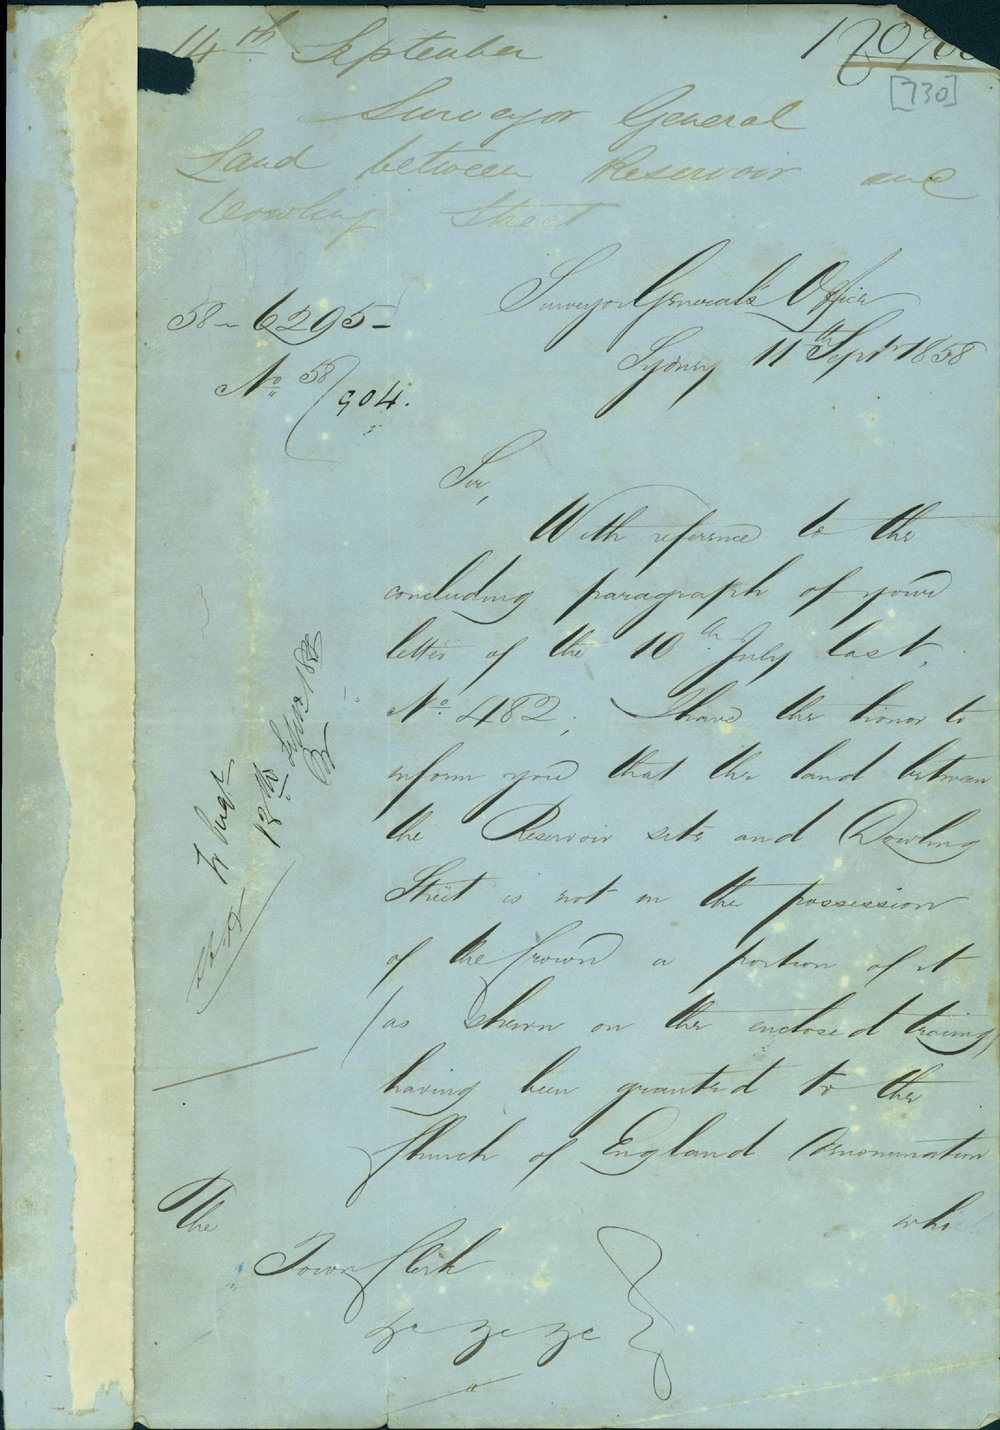 14th September
[730]
Surveyor General
Land between Reservoir and
Dowling Street
58-6295-
No 58/904.
Surveyor General's Office
Sydney 11th Septr 1858
Sir,
With reference to the
concluding paragraph of your
letter of the 10th July last,
No. 482, I have the honor to
inform you that the land between
the Reservoir site and Dowling
Street is not in the possession
of the Crown a portion of it
(as shewn on the enclosed tracing)
having been granted to the
Church of England Denomination
which
The
Town Clerk
&c &c &c
13th